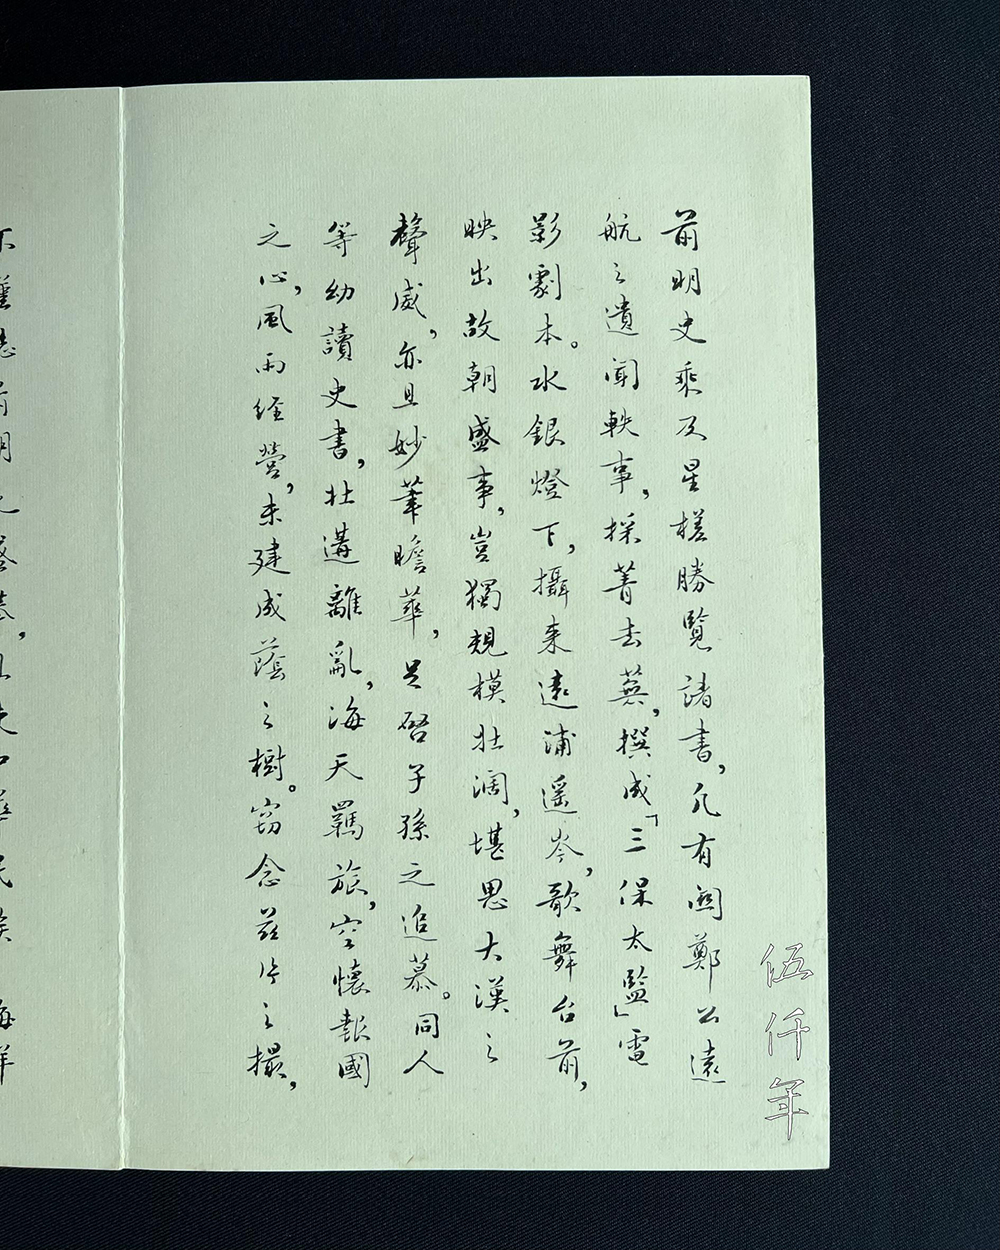 前明史乘及星槎勝覽諸書，凡有關鄭公遠
航之遺聞軼事，採菁去蕪，撰成「三保太監」電
影劇本。水銀燈下，攝來遠浦遥岑，歌舞台前，
映出故朝盛事，豈獨規模壯濶，堪思大漢之
聲威，亦且妙筆瞻華，足啓子孫之追慕。同人
等幼讀史書，壯遘離亂，海天羈旅，空懷報國
之心，風雨經營，未建成蔭之樹。竊念茲片之攝，
伍仟年